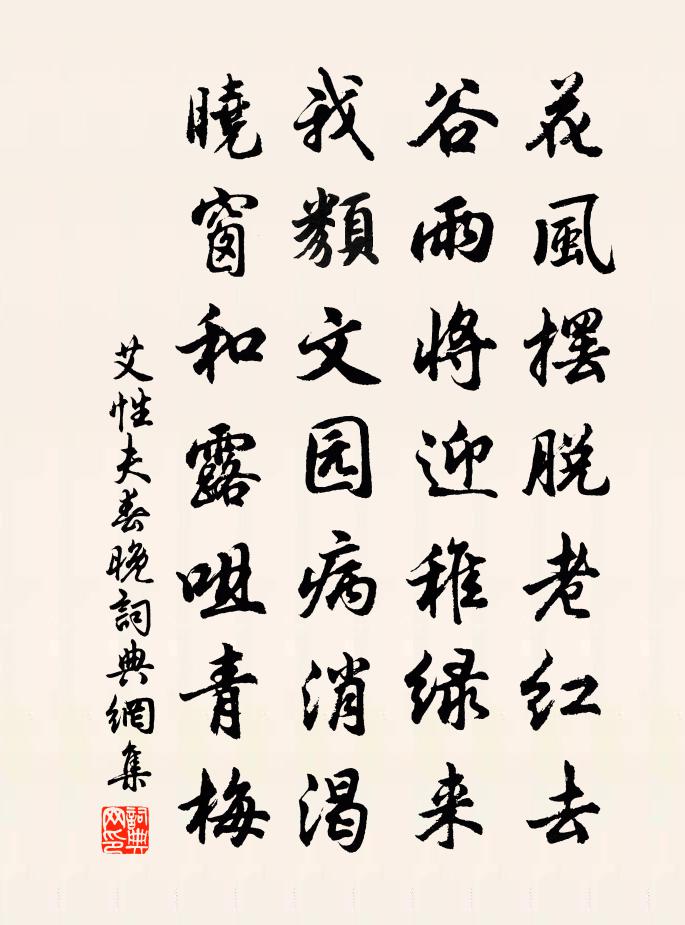 花風擺脱老红去
谷雨將迎稚绿来
我類文园病消渴
曉窗和露咀青梅
艾性夫春晚詞典網集
詞典网印